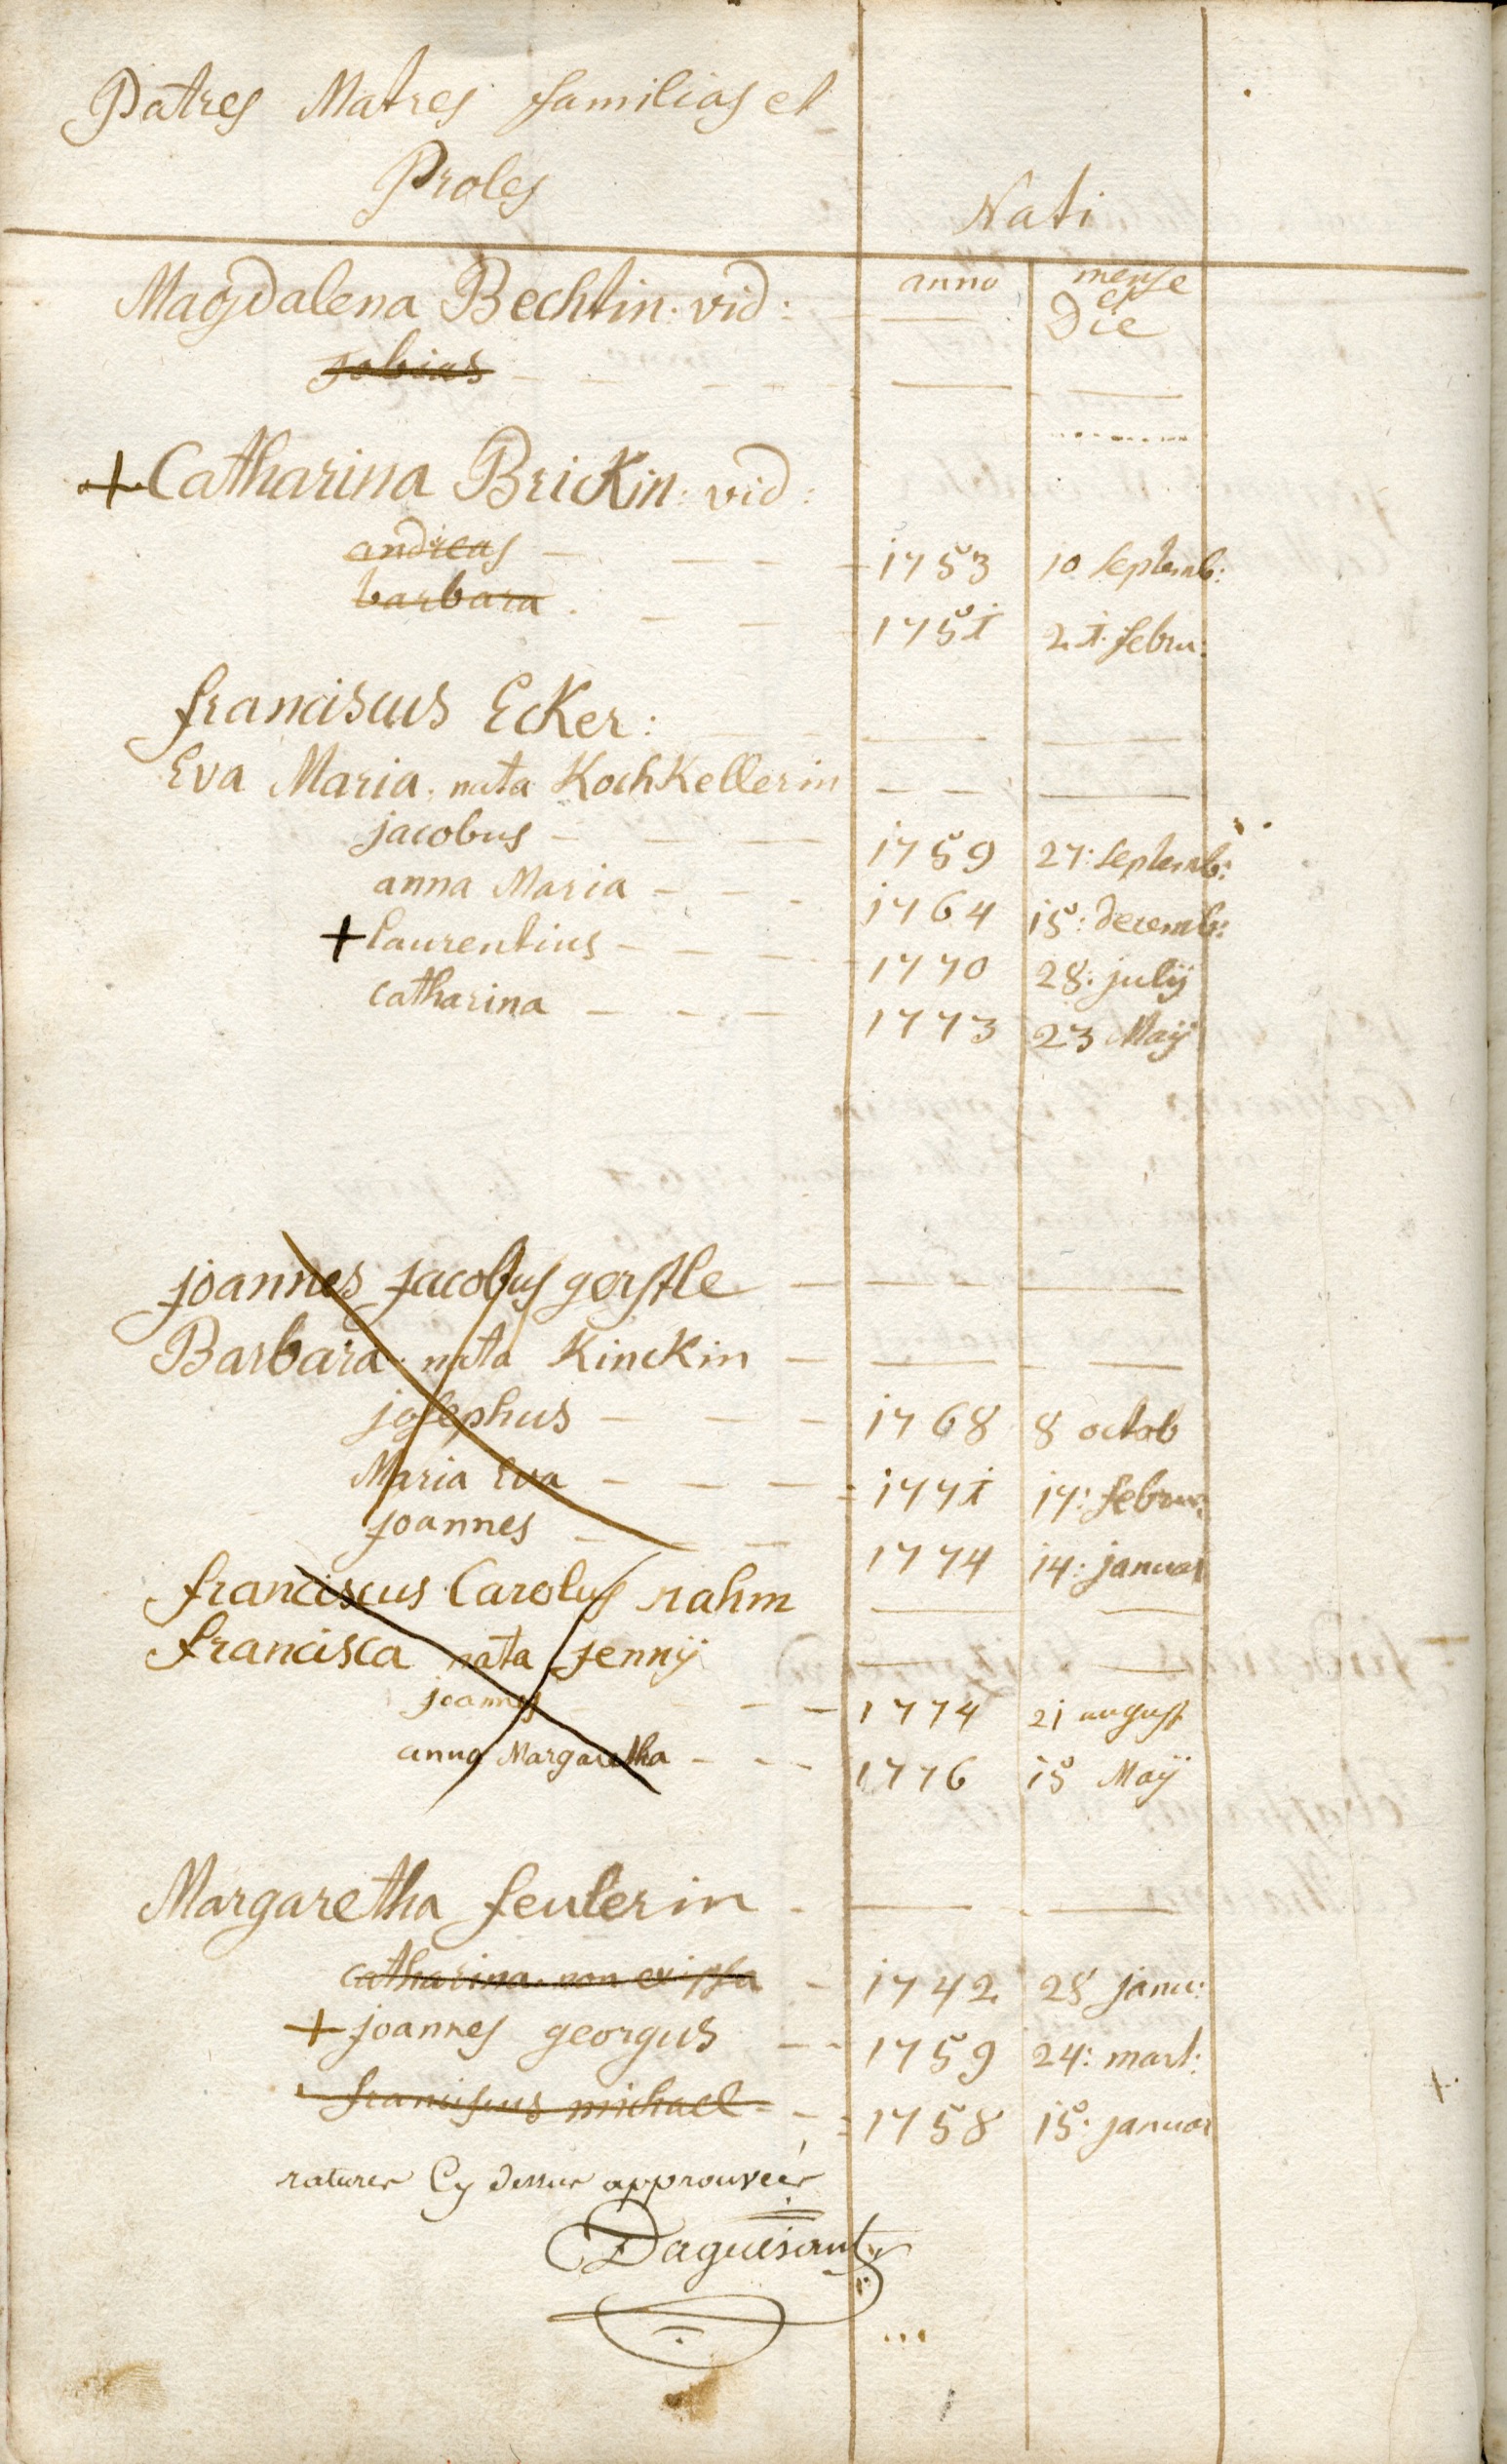 Patres Matres familias et
Proles
Nati
anno mense
et
Die
Magdalena Bechtin. vid:
tobias
+ Catharina Brickin: vid:
andreas 1753 10 septemb:
barbara 1751 21. febru:
franciscus Ecker:
Eva Maria. nata KochKellerin
jacobus 1759 27: septemb:
anna Maria 1764 15: decemb:
+ laurentius 1770 28: julij
catharina 1773 23 Maij
joannes jacobus gerstle
Barbara. nata Kinckin
josephus 1768 8 octob
Maria Eva 1771 17: febru:
joannes 1774 14: januar
franciscus Carolus rahm
francisca nata jennij
joannes 1774 21 august
anna Margaretha 1776 15 Maij
Margaretha feulerin
catharina. non 1742 28 janu:
+ joannes georgus 1759 24: mart:
franciscus michael 1758 15: januar
ratures Cy dessus approuveés